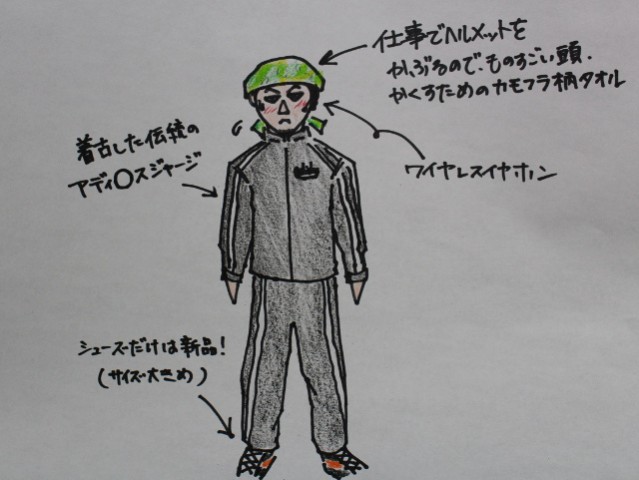 仕事でヘルメットを
かぶるので、ものすごい頭.
かくすためのカモフラ柄タオル
着古した伝統の
アディ〇スジャージ
ワイヤレスイヤホン
シューズだけは新品!
(サイズ大きめ)